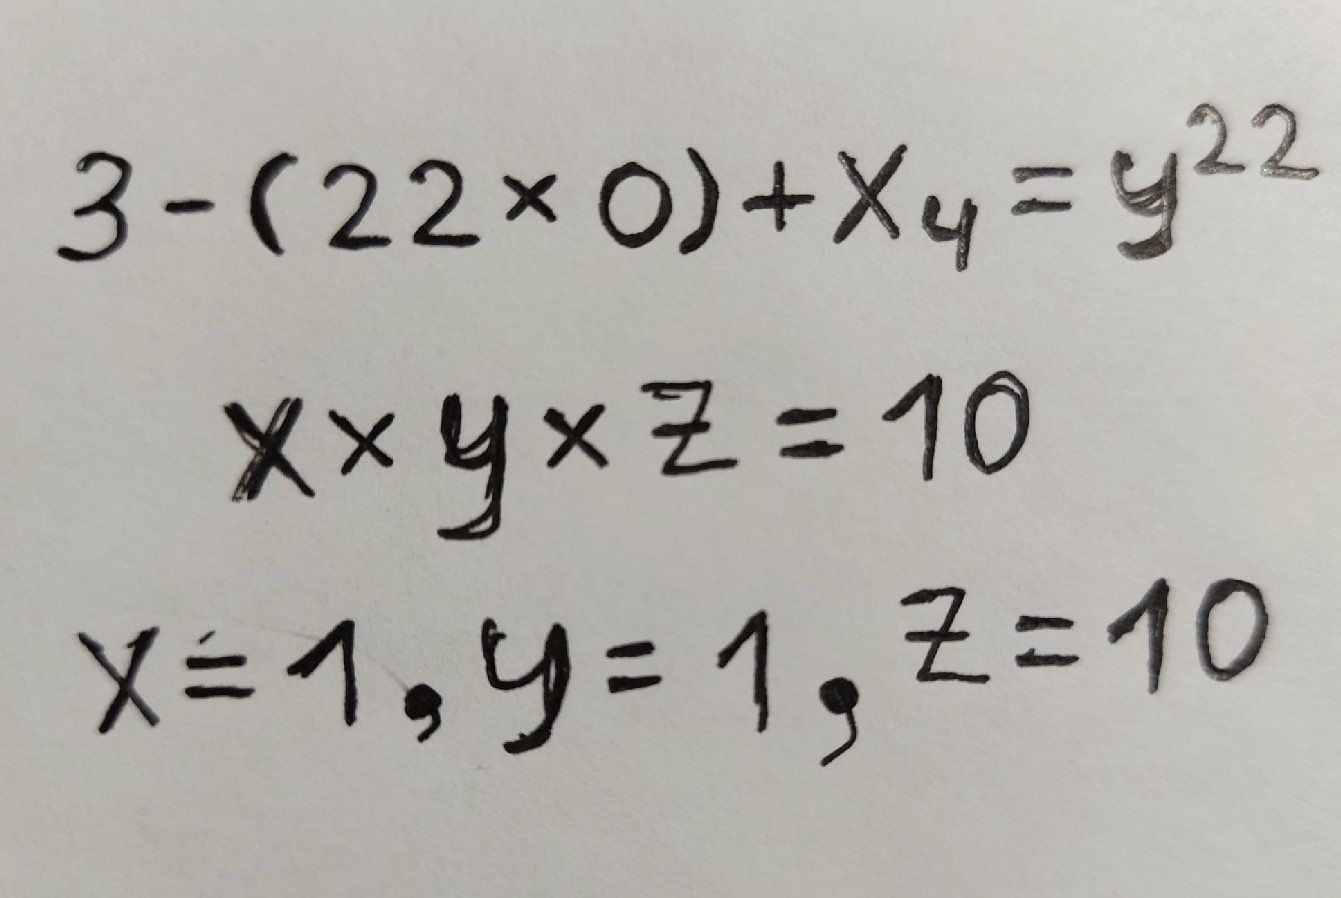 3-(22×0)+X₄=y²²
x×y×z=10
x=1,y=1,z=10